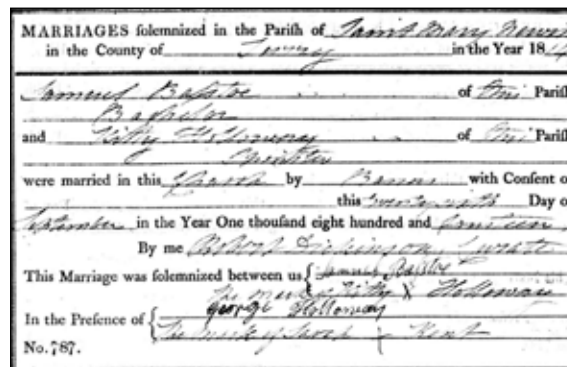 MARRIAGES solemnized in the Parish of Saint Mary Newin
in the County of Surrey in the Year 181
Samuel Bastoe of this Parish
Bachelor
and Kitty Holloway of this Parish
Spinster
were married in this Church by Banns with Consent o
this Day o
September in the Year One thousand eight hundred and
By me Robert Dickinson Curate
This Marriage was solemnized between us { Samuel Bastoe
The mark of Kitty X Holloway
In the Presence of { George Holloway
The mark of Kent
No. 787.